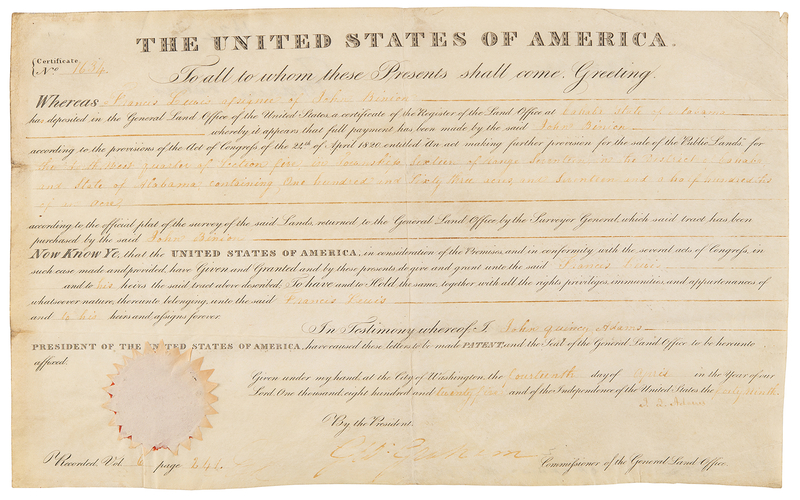 THE UNITED STATES OF AMERICA.
Certificate
No. 1634
To all to whom these Presents shall come, Greeting.
Whereas Francis Lewis assignee of John Binion
has deposited in the General Land Office of the United States, a certificate of the Register of the Land Office at Cahaba State of Alabama
whereby it appears that full payment has been made by the said John Binion
according to the provisions of the Act of Congress of the 24th of April 1820, entitled An act making further provision for the sale of the Public Lands, for
the North West quarter of Section five in Township sixteen of Range Seventeen in the District of Cahaba
and State of Alabama containing One hundred and Sixty three acres, and Seventeen and a half hundredths
of an Acre
according to the official plat of the survey of the said Lands, returned to the General Land Office, by the Surveyor General, which said tract has been
purchased by the said John Binion
Now Know Ye, that the UNITED STATES OF AMERICA, in consideration of the Premises, and in conformity with the several acts of Congress, in
such case made and provided, have Given and Granted and by these presents do give and grant unto the said Francis Lewis
and to his heirs the said tract above described: To have and to Hold the same, together with all the rights, privileges, immunities, and appurtenances of
whatsoever nature, thereunto belonging, unto the said Francis Lewis
and to his heirs and assigns forever.
In Testimony whereof I, John Quincy Adams
PRESIDENT OF THE UNITED STATES OF AMERICA, have caused these letters to be made PATENT, and the Seal of the General Land Office to be hereunto
affixed.
Given under my hand, at the City of Washington, the fourteenth day of April in the Year of our
Lord, One thousand, eight hundred and twenty five and of the Independence of the United States the forty ninth.
J. Q. Adams
By the President.
Commissioner of the General Land Office.
Recorded, Vol. 6 page 241.